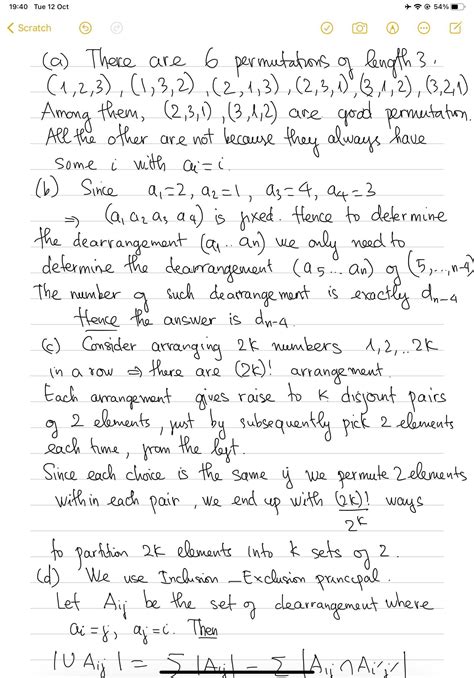 19:40 Tue 12 Oct
54%
Scratch
(a) There are 6 permutations of length 3.
(1,2,3), (1,3,2), (2,1,3), (2,3,1), (3,1,2), (3,2,1)
Among them, (2,3,1), (3,1,2) are good permutation.
All the other are not because they always have
some i with ai = i.
(b) Since a1=2, a2=1, a3=4, a4=3
⇒ (a1 a2 a3 a4) is fixed. Hence to determine
the dearrangement (a1 .. an) we only need to
determine the dearrangement (a5 ... an) of (5, ..., n-4)
The number of such dearrangement is exactly dn-4
Hence the answer is dn-4.
(c) Consider arranging 2k numbers 1, 2, .. 2k
in a row ⇒ there are (2k)! arrangement.
Each arrangement gives raise to k disjoint pairs
of 2 elements, just by subsequently pick 2 elements
each time, from the left.
Since each choice is the same if we permute 2 elements
within each pair, we end up with (2k)!/2^k ways
to partition 2k elements into k sets of 2.
(d) We use Inclusion _ Exclusion principal.
Let Aij be the set of dearrangement where
ai = j, aj = i. Then
|∪ Aij| = Σ |Aij| - Σ |Aij ∩ Ai'j'|